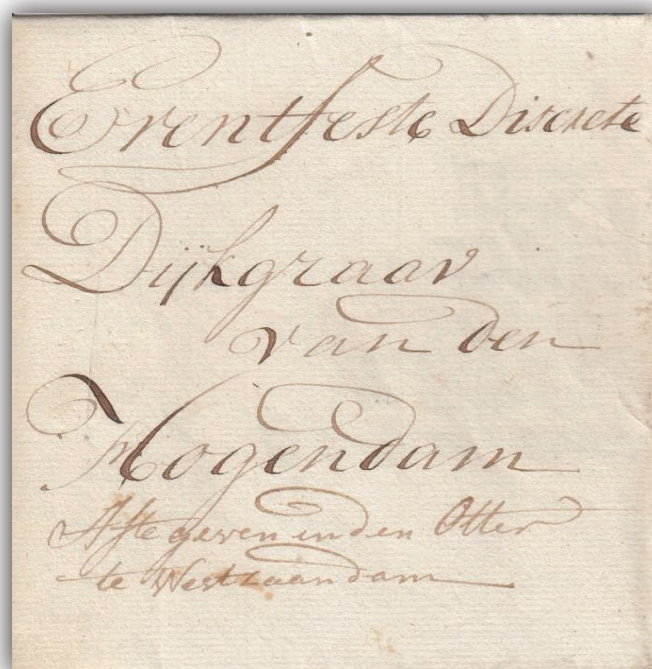 Erentfeste Discrete
Dijkgraav
van den
Hogendam
Afte geven in den Otter
te Westzaandam